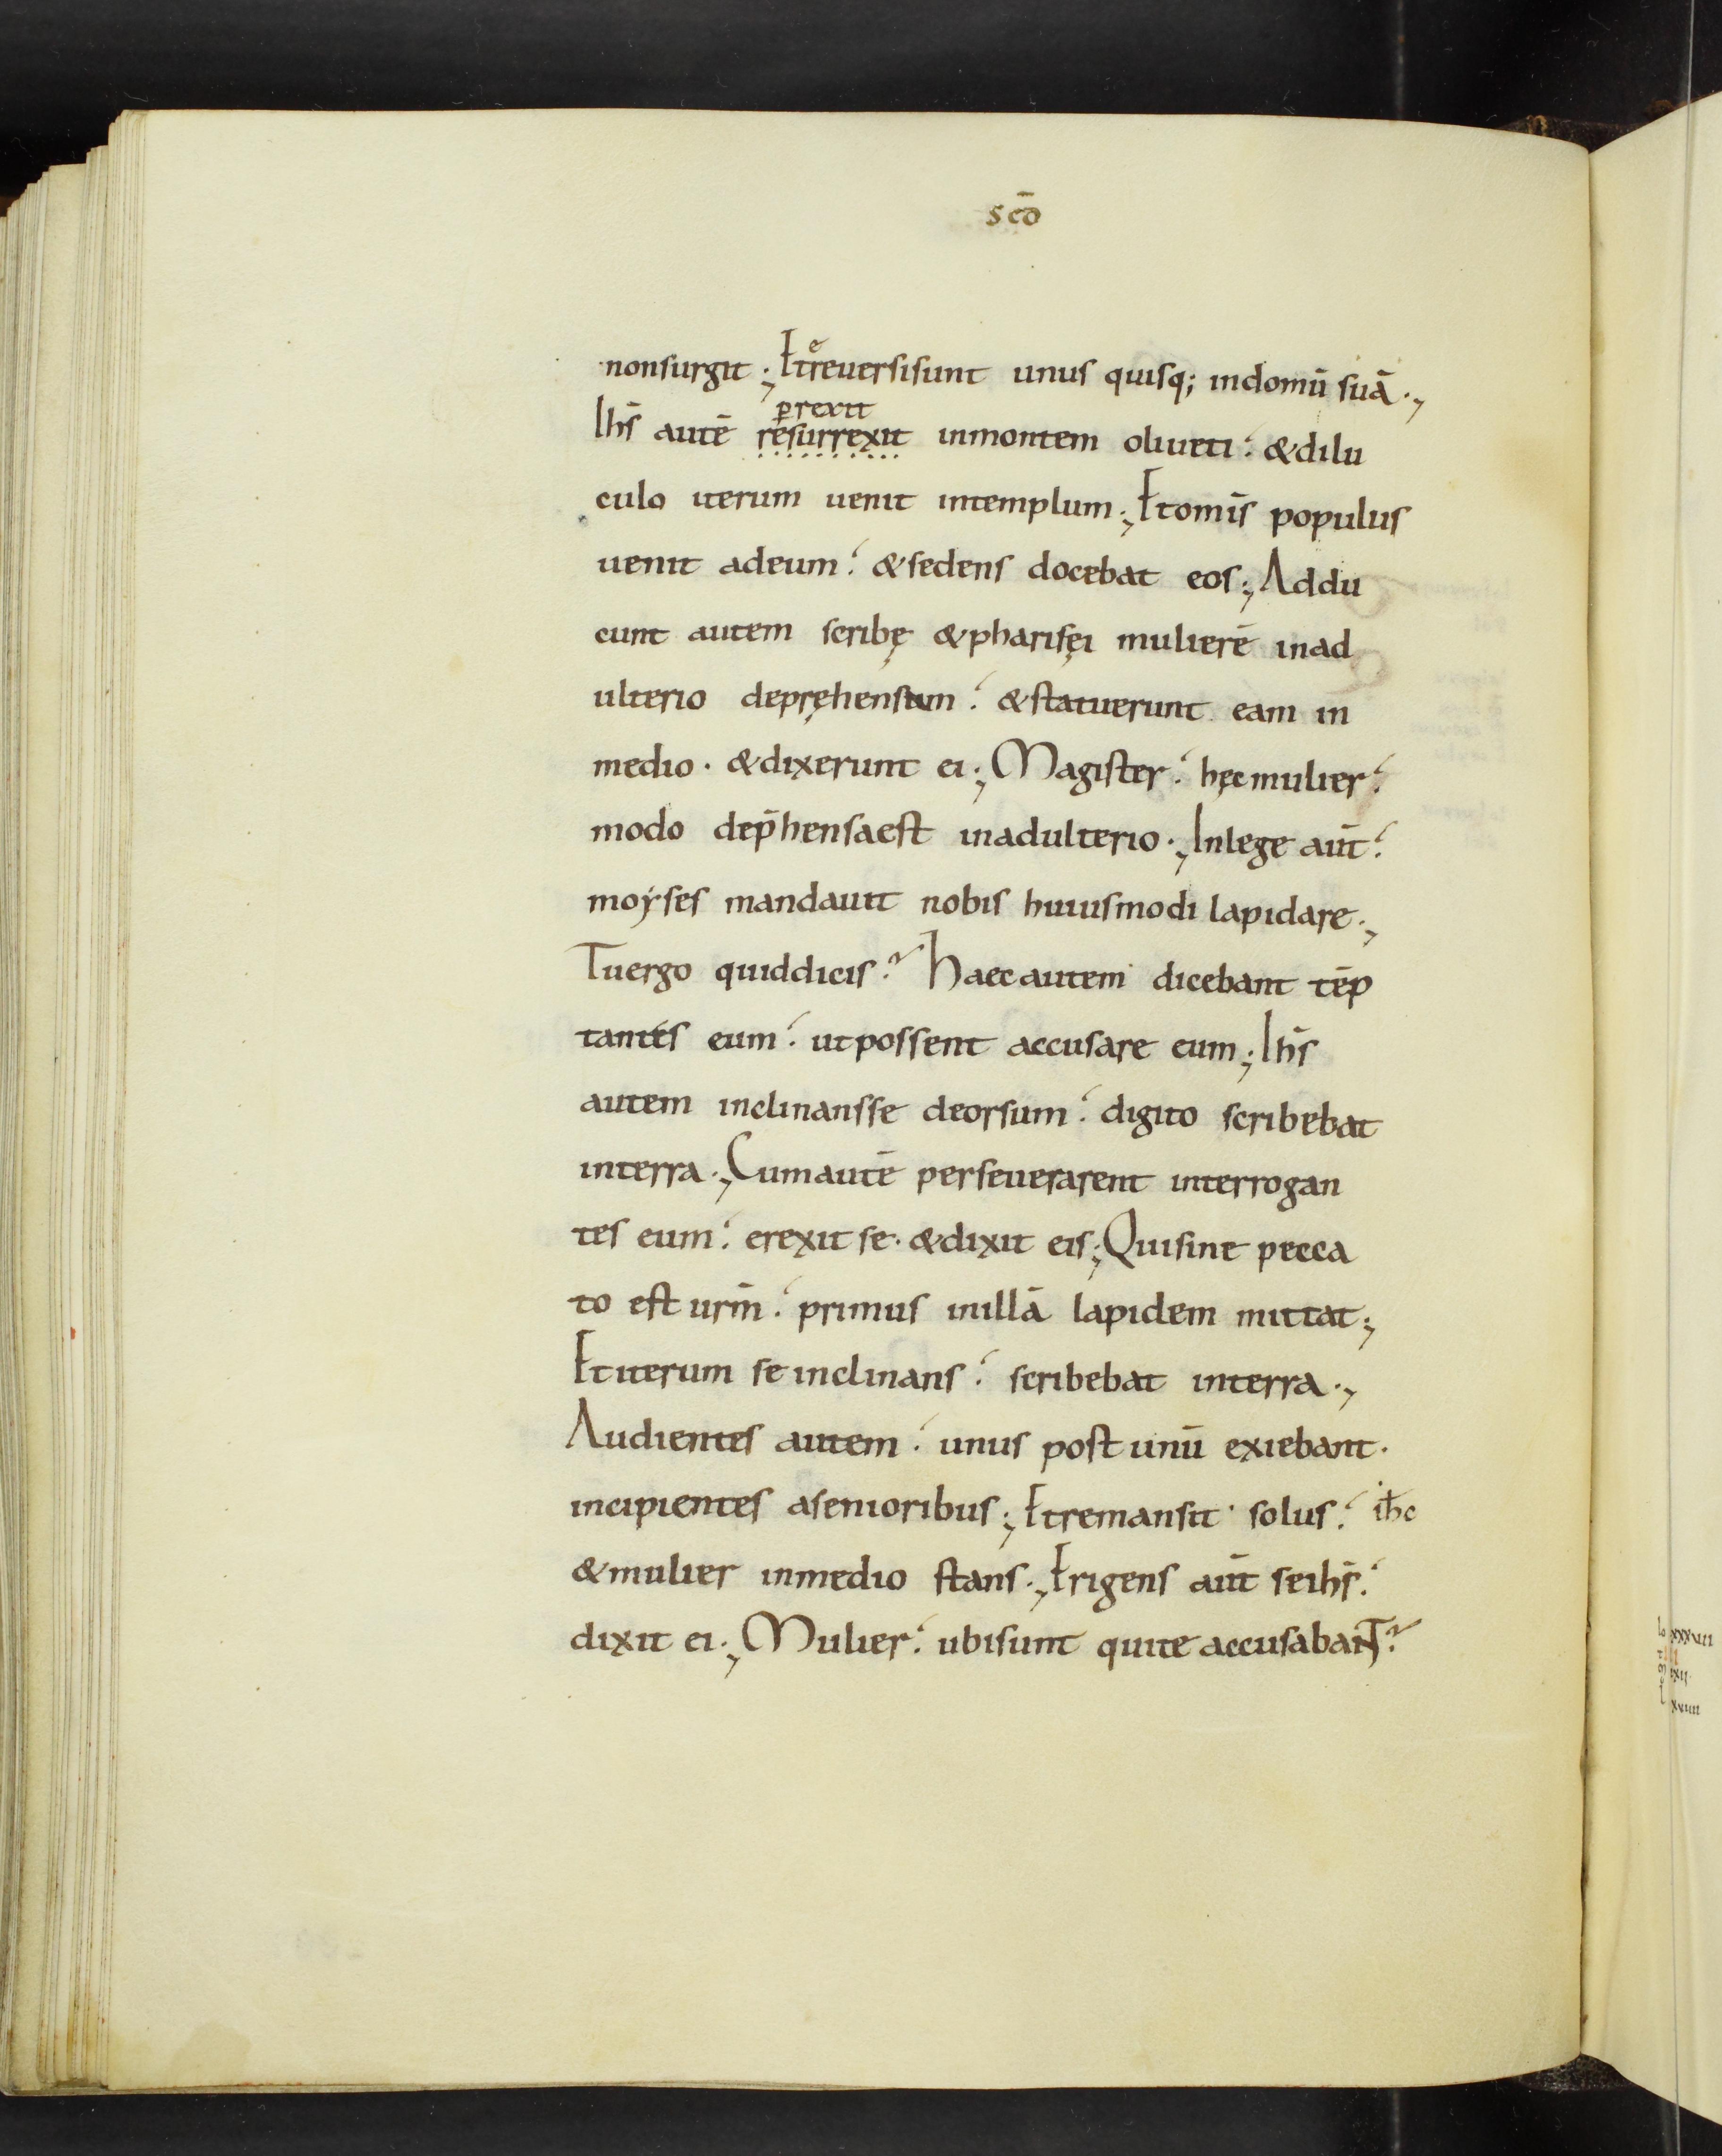 scō
nonsurgit ·, Et reuersisunt unus quisq; indomū suā ·,
e
perrexit
Ihs̄ autē resurrexit inmontem oliueti: &dilu
culo iterum uenit intemplum ·, Et omīs populus
uenit adeum: &sedens docebat eos ·, Addu
cunt autem scribę &pharisęi mulierē inad
ulterio depręhensam: &statuerunt eam in
medio · &dixerunt ei ·, Magister: hęcmulier:
modo dep̄hensaest inadulterio ·, Inlege aūt:
moẏses mandauit nobis huiusmodi lapidare ·,
Tuergo quiddicis? Haecautem dicebant tēp
tantes eum: utpossent accusare eum ·, Ihs̄
autem inclinansse deorsum: digito scribebat
interra ·, Cumautē perseuerarent interrogan
tes eum: erexit se · &dixit eis ·, Quisine pecca
to est urm̄: primus inillā lapidem mittat ·,
Etiterum se inclinans: scribebat interra ·,
Audientes autem: unus post unū exiebant ·
incipientes asenioribus ·, Etremansit solus: ihc
&mulier inmedio stans ·, Erigens aūt seihs̄:
dixit ei ·, Mulier: ubisunt quite accusabaNT?
xxxviii
lxii
xviiii